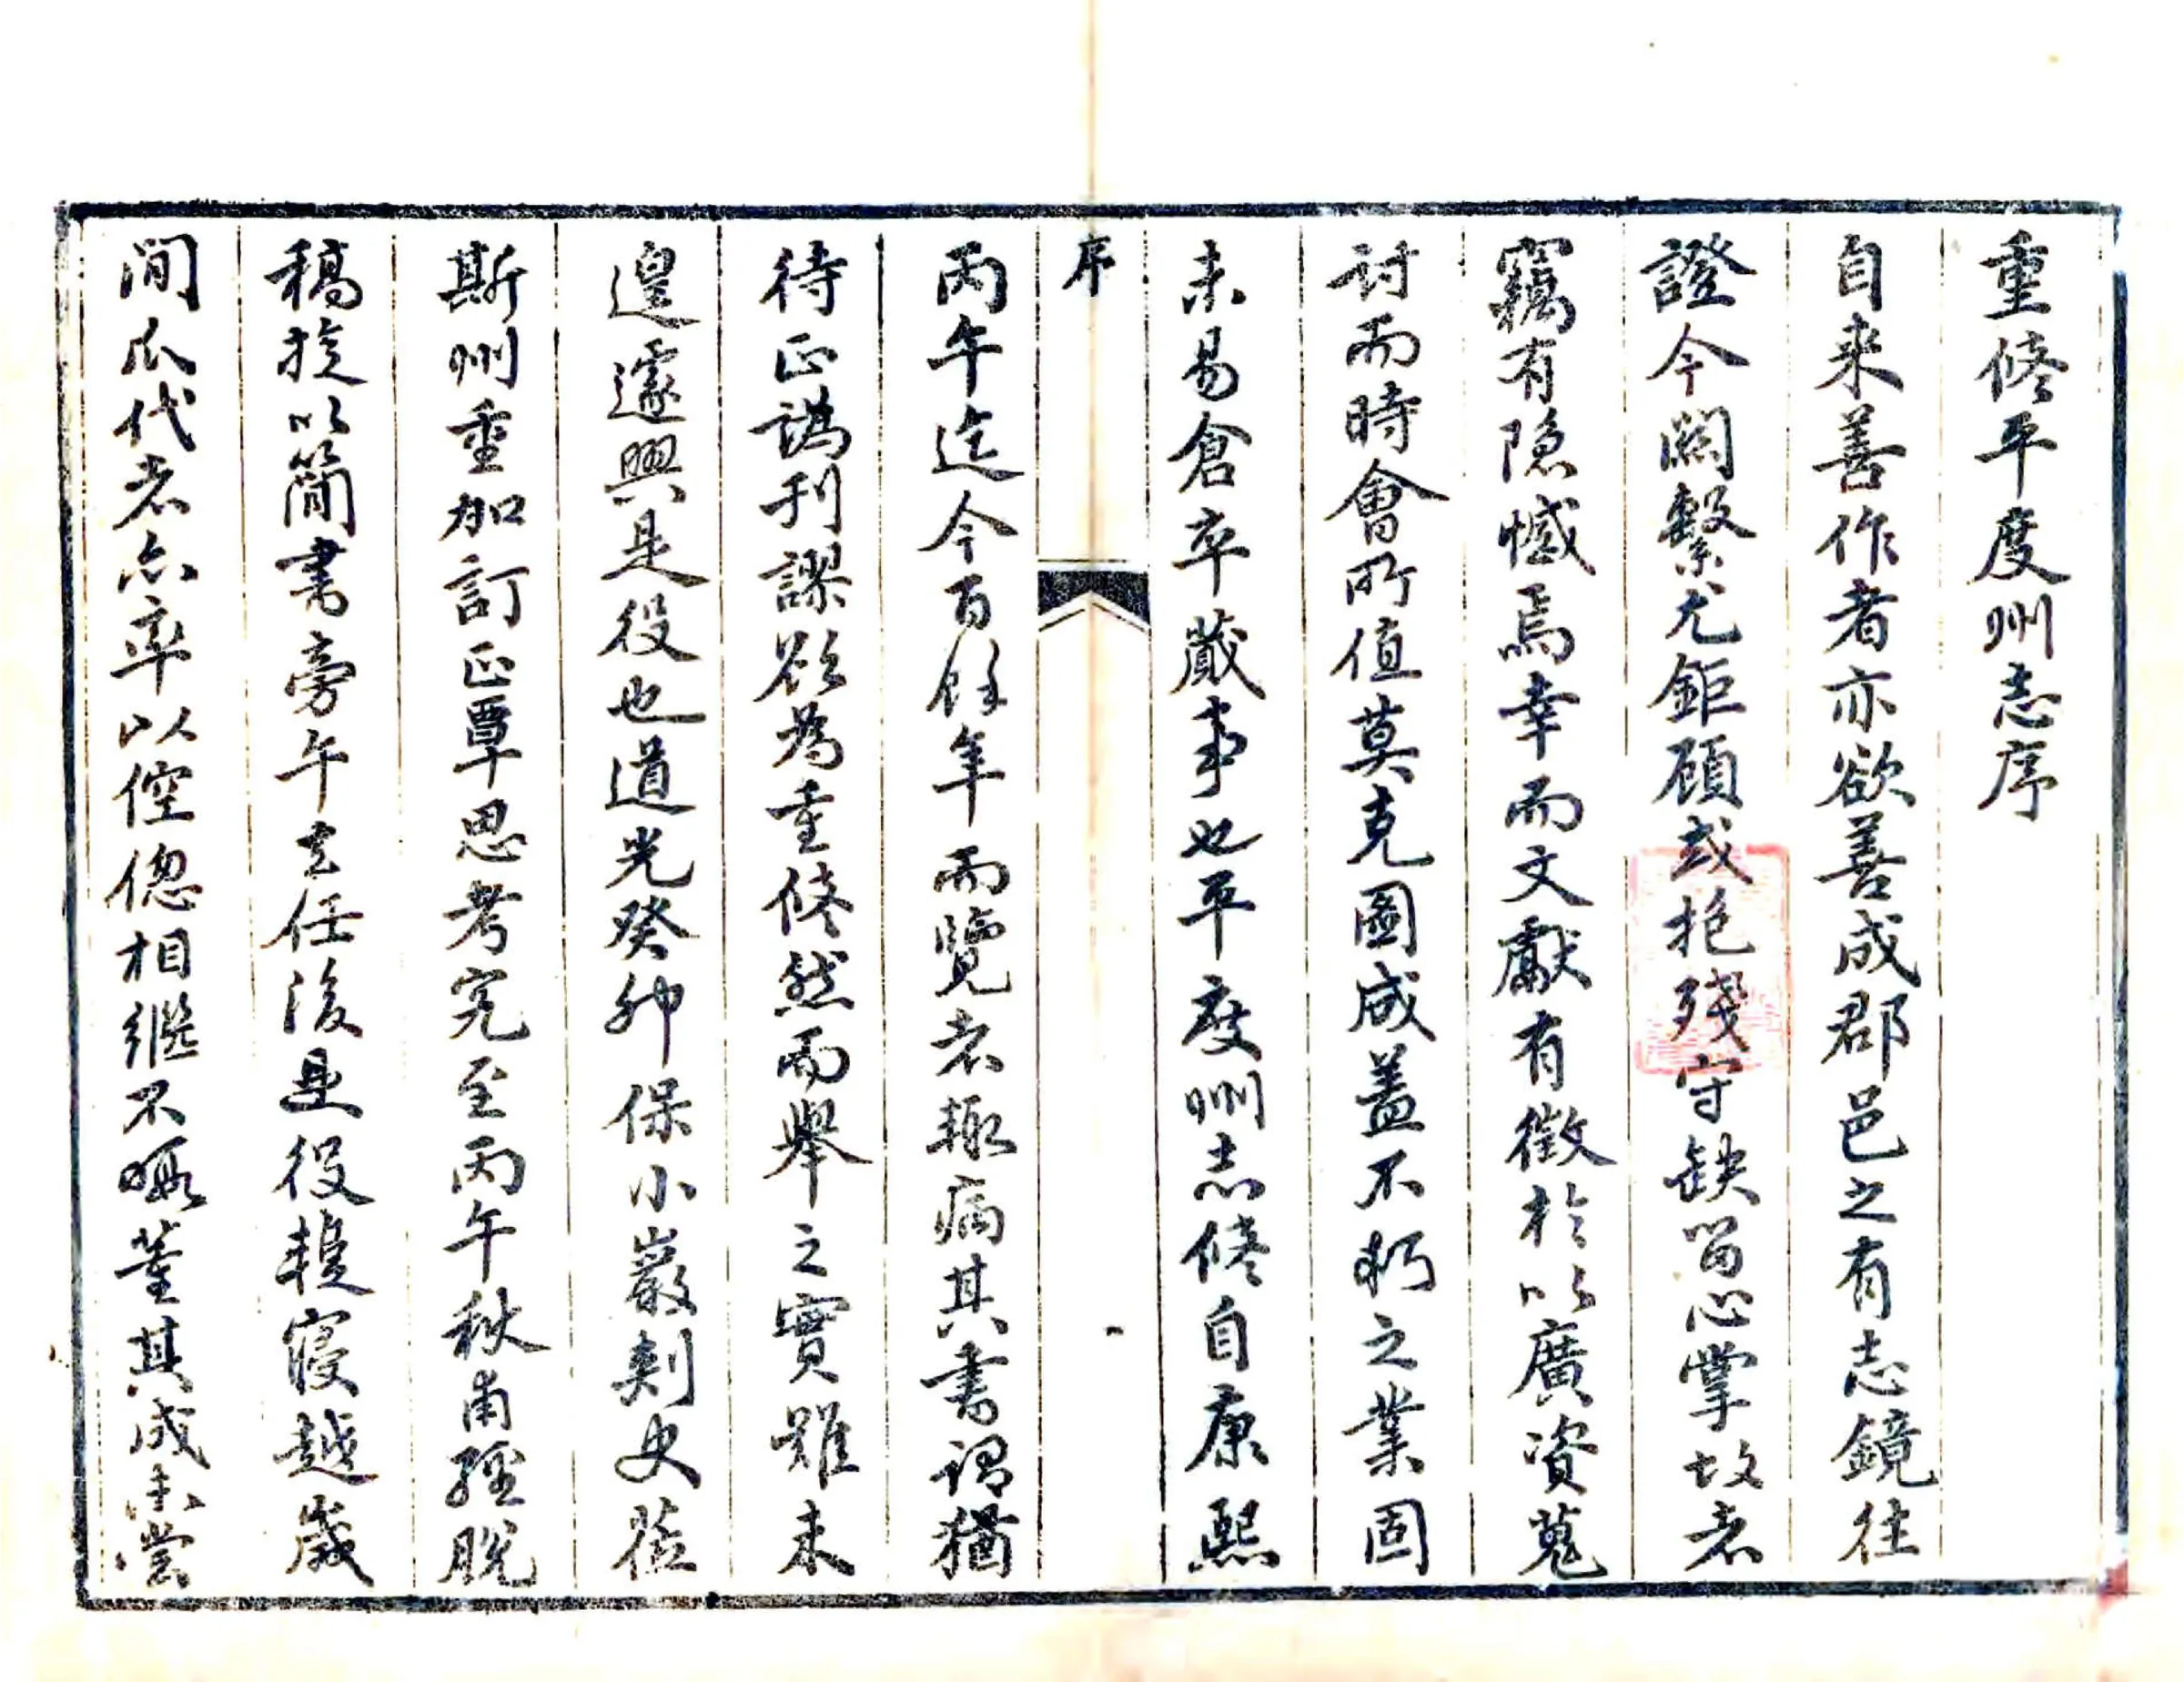 重修平度州志序
自来善作者亦欲善成郡邑之有志鏡往
證今關繫尤鉅顧或抱殘守缺留心掌故者
竊有隱憾焉幸而文獻有徵於以廣資蒐
討而時會所值莫克圖成蓋不朽之業固
未易倉卒蕆事也平度州志修自康熙
序
一
丙午迄今百餘年而覽者輒病其書謂猶
待正譌刊謬欲為重修然而舉之實難未
遑遽興是役也道光癸卯保小巖刺史蒞
斯州重加訂正覃思考究至丙午秋甫經脫
稿旋以簡書旁午去任後是役輒寢越歲
間瓜代者亦率以倥偬相繼不暇董其成未嘗